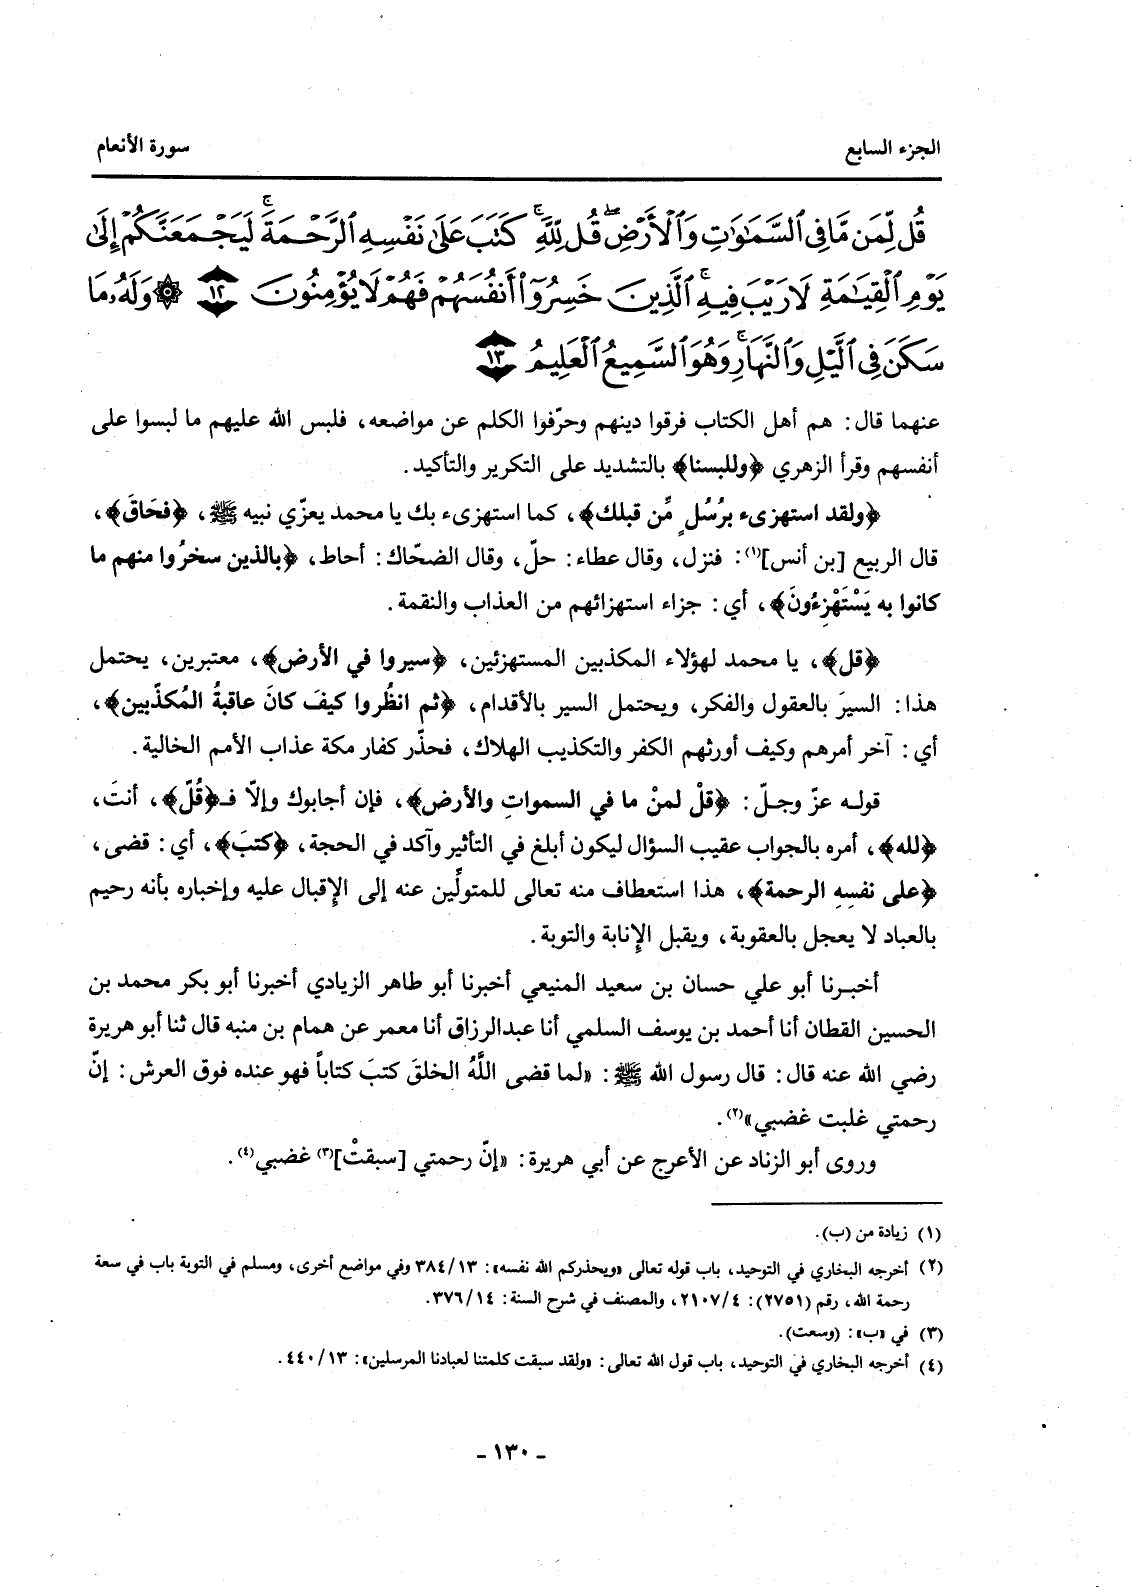 الجزء السابع
سورة الأنعام
قُل لِّمَن مَّا فِي ٱلسَّمَٰوَٰتِ وَٱلْأَرْضِۖ قُل لِّلَّهِۚ كَتَبَ عَلَىٰ نَفْسِهِ ٱلرَّحْمَةَۚ لَيَجْمَعَنَّكُمْ إِلَىٰ
يَوْمِ ٱلْقِيَٰمَةِ لَا رَيْبَ فِيهِۚ ٱلَّذِينَ خَسِرُوٓا۟ أَنفُسَهُمْ فَهُمْ لَا يُؤْمِنُونَ ١٢ ۞ وَلَهُۥ مَا
سَكَنَ فِي ٱلَّيْلِ وَٱلنَّهَارِۚ وَهُوَ ٱلسَّمِيعُ ٱلْعَلِيمُ ١٣
عنهما قال: هم أهل الكتاب فرقوا دينهم وحرّفوا الكلم عن مواضعه، فلبس الله عليهم ما لبسوا على
أنفسهم وقرأ الزهري ﴿وللبسنا﴾ بالتشديد على التكرير والتأكيد.
﴿ولقد استهزىء برُسُلٍ مِّن قبلك﴾، كما استهزىء بك يا محمد يعزّي نبيه ﷺ، ﴿فحَاقَ﴾،
قال الربيع [بن أنس](١): فنزل، وقال عطاء: حلّ، وقال الضحّاك: أحاط، ﴿بالذين سخرُوا منهم ما
كانوا به يَسْتَهْزِءُونَ﴾، أي: جزاء استهزائهم من العذاب والنقمة.
﴿قل﴾، يا محمد لهؤلاء المكذبين المستهزئين، ﴿سيروا في الأرض﴾، معتبرين، يحتمل
هذا: السيرَ بالعقول والفكر، ويحتمل السير بالأقدام، ﴿ثم انظُروا كيفَ كانَ عاقبةُ المُكذّبين﴾،
أي: آخر أمرهم وكيف أورثهم الكفر والتكذيب الهلاك، فحذّر كفار مكة عذاب الأمم الخالية.
قوله عزّ وجلّ: ﴿قلْ لمنْ ما في السمواتِ والأرض﴾، فإن أجابوك وإلاّ فـ﴿قُلّ﴾، أنتَ،
﴿لله﴾، أمره بالجواب عقيب السؤال ليكون أبلغ في التأثير وآكد في الحجة، ﴿كتبَ﴾، أي: قضى،
﴿على نفسِهِ الرحمة﴾، هذا استعطاف منه تعالى للمتولِّين عنه إلى الإقبال عليه وإخباره بأنه رحيم
بالعباد لا يعجل بالعقوبة، ويقبل الإنابة والتوبة.
أخبرنا أبو علي حسان بن سعيد المنيعي أخبرنا أبو طاهر الزيادي أخبرنا أبو بكر محمد بن
الحسين القطان أنا أحمد بن يوسف السلمي أنا عبدالرزاق أنا معمر عن همام بن منبه قال ثنا أبو هريرة
رضي الله عنه قال: قال رسول الله ﷺ: «لما قضى اللَّهُ الخلقَ كتبَ كتاباً فهو عنده فوق العرش: إنّ
رحمتي غلبت غضبي»(٢).
وروى أبو الزناد عن الأعرج عن أبي هريرة: «إنّ رحمتي [سبقتْ](٣) غضبي(٤).
(١) زيادة من (ب).
(٢) أخرجه البخاري في التوحيد، باب قوله تعالى «ويحذركم الله نفسه»: ٣٨٤/١٣ وفي مواضع أخرى، ومسلم في التوبة باب في سعة
رحمة الله، رقم (٢٧٥١): ٢١٠٧/٤، والمصنف في شرح السنة: ٣٧٦/١٤.
(٣) في «ب»: (وسعت).
(٤) أخرجه البخاري في التوحيد، باب قول الله تعالى: «ولقد سبقت كلمتنا لعبادنا المرسلين»: ٤٤٠/١٣.
- ١٣٠ -